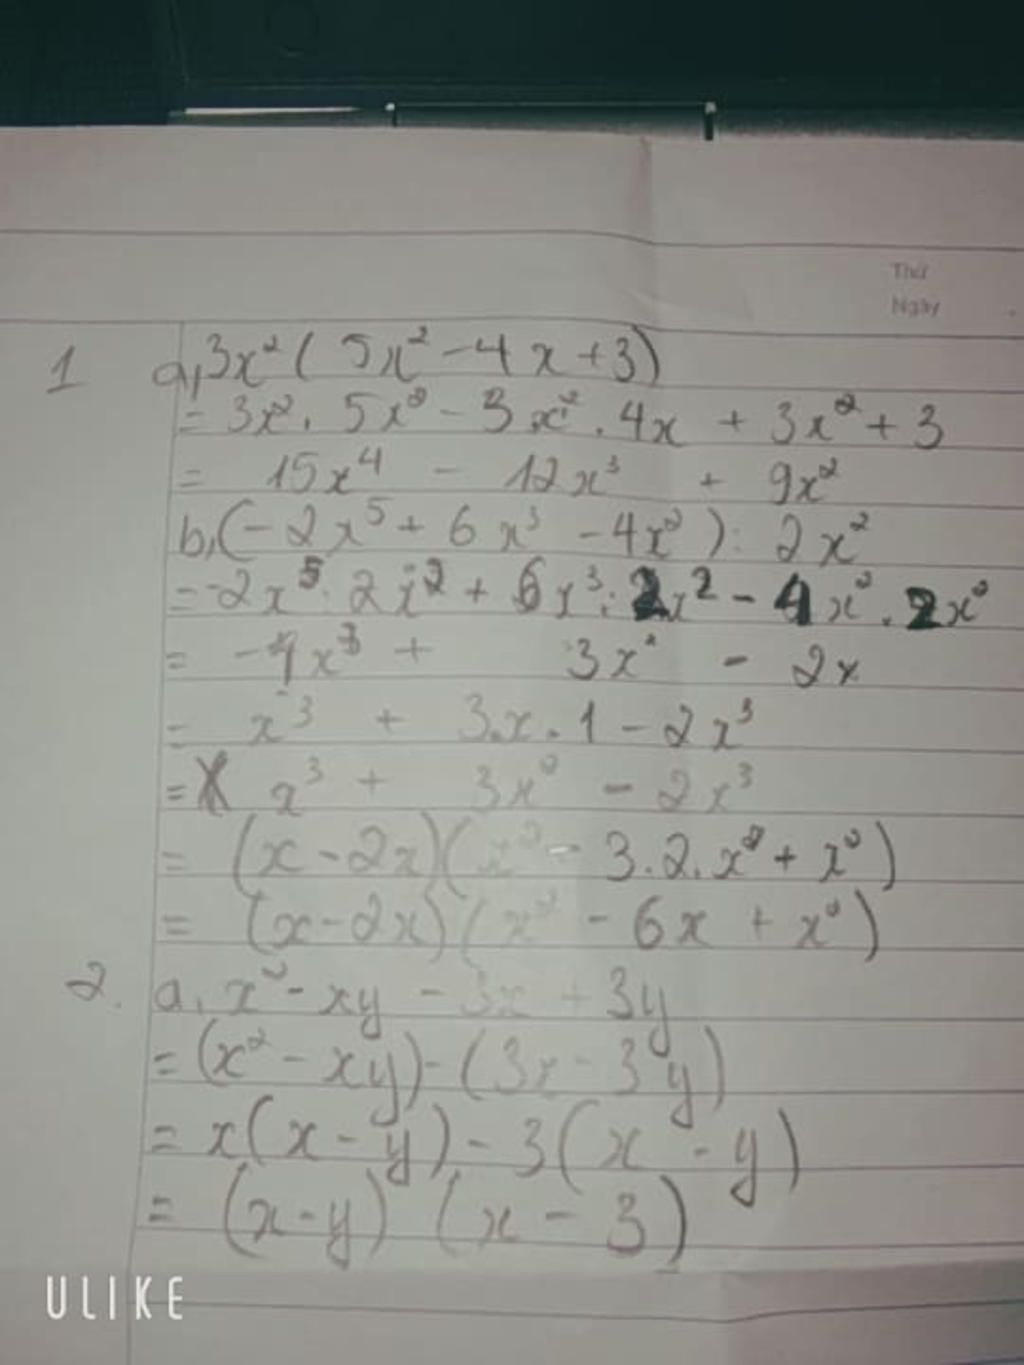 Thứ
Ngày
1 a, 3x² ( 5x² - 4x + 3)
= 3x² . 5x² - 3x² . 4x + 3x² + 3
= 15x⁴ - 12x³ + 9x²
b, (-2x⁵ + 6x³ - 4x²) : 2x²
= -2x⁵ : 2x² + 6x³ : 2x² - 4x² . 2x²
= x³ + 3x² - 2x
= x³ + 3.x.1 - 2x³
= x³ + 3x² - 2x³
= (x - 2x)(x² - 3.2.x² + x²)
= (x - 2x)(x² - 6x + x²)
2. a, x² - xy - 3x + 3y
= (x² - xy) - (3x - 3y)
= x(x - y) - 3(x - y)
= (x - y) (x - 3)
ULIKE